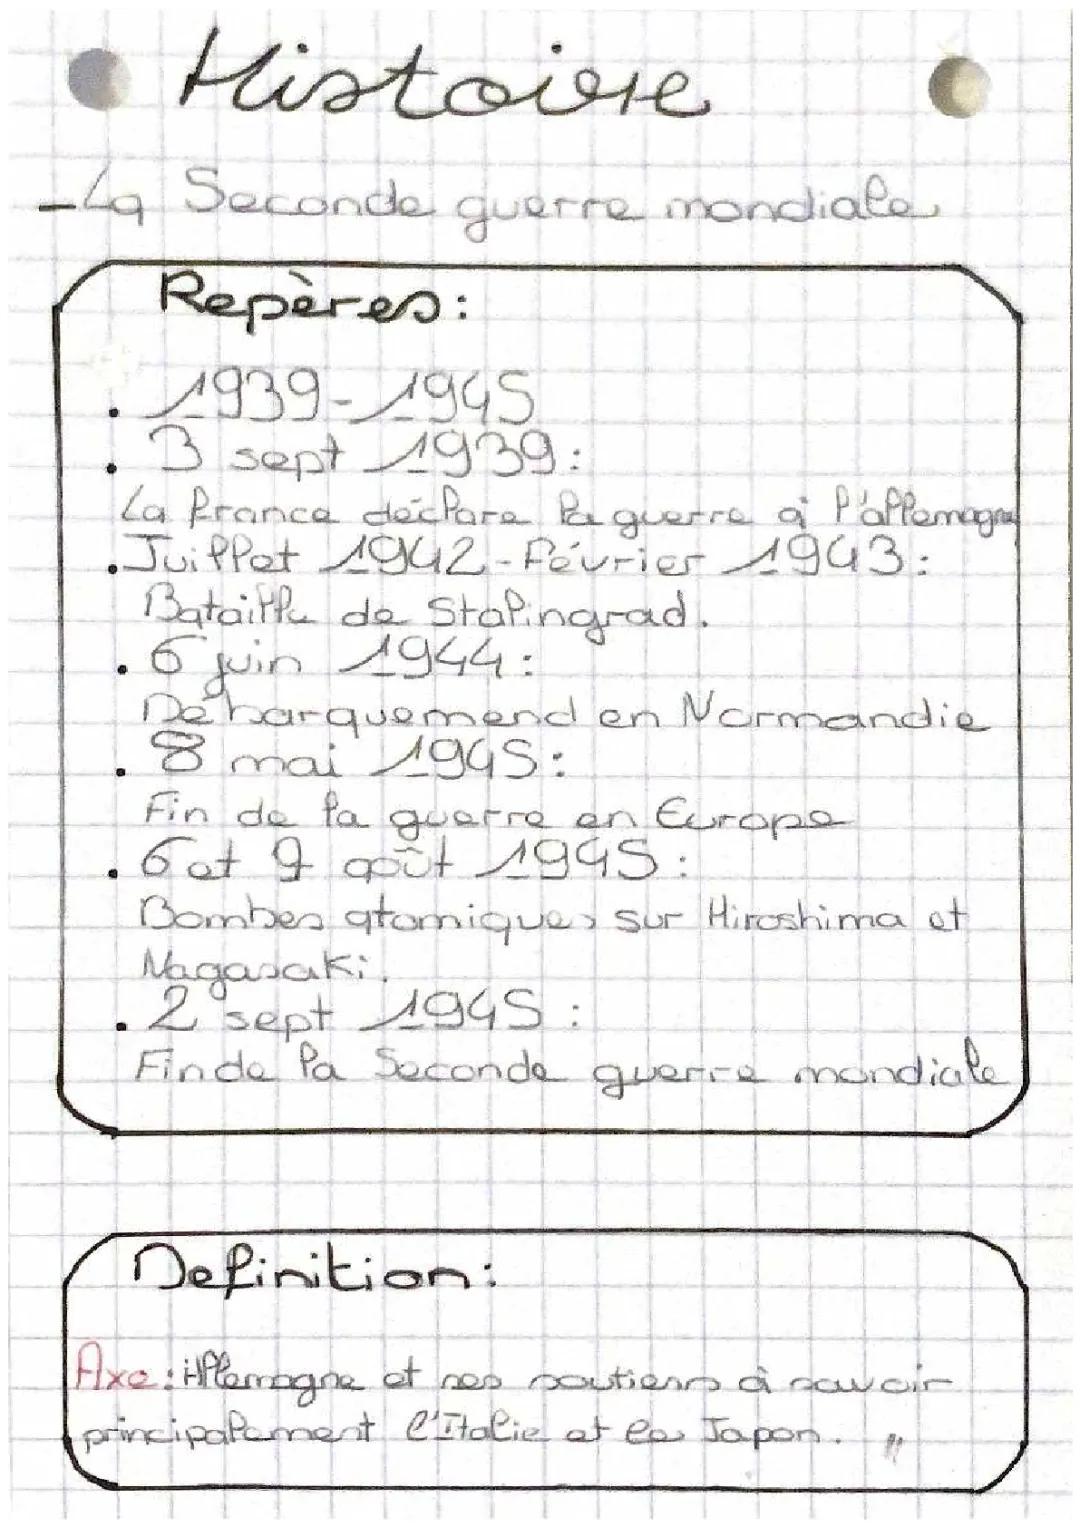 Histoire
- La Seconde guerre mondiale
Repères:
. 1939-1945
. 3 sept 1939:
La France déclare la guerre à l'allemagne
. Juillet 1942-Février 1943:
Bataille de Stalingrad.
. 6 juin 1944:
Débarquemend en Normandie
. 8 mai 1945:
Fin de la guerre en Europe
. 6 et 9 août 1945:
Bombes atomiques sur Hiroshima et
Nagasaki.
. 2 sept 1945:
Fin de la Seconde guerre mondiale
Definition:
Axe: Allemagne et ses soutiens à savoir
principalement l'Italie et le Japon. "